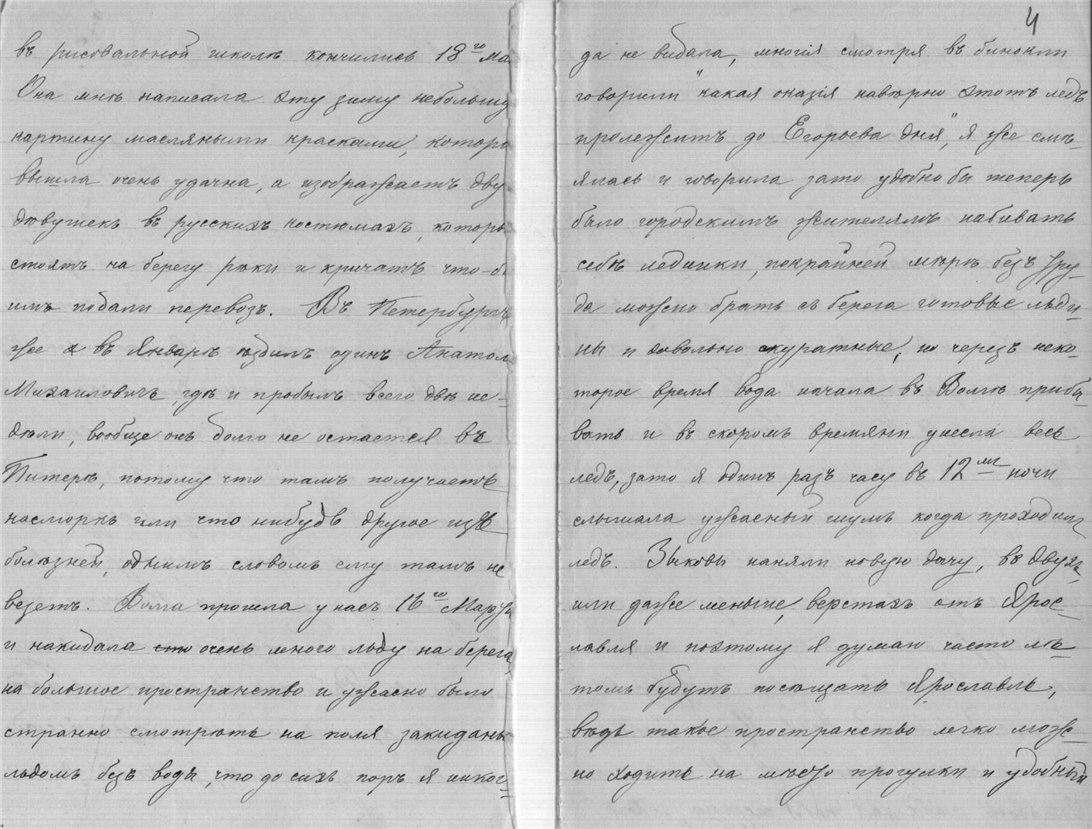 въ рисовальной школѣ кончились 18го ма
Она мнѣ написала эту зиму небольшу
картину масляными красками, котора
вышла очень удачна, а изображаетъ дву
дѣвушекъ въ русскихъ костюмахъ, которы
стоятъ на берегу рѣки и кричатъ что-б
имъ подали перевозъ. Въ Петербургѣ
же въ Январѣ ѣздилъ одинъ Анатол
Михаиловичъ, гдѣ и пробылъ всего двѣ не-
дѣли, вообще онъ долго не остается въ
Питерѣ, потому что тамъ получаетъ
насморкъ или что нибудь другое изъ
болѣзней, однимъ словомъ ему тамъ не
везетъ. Волга прошла у насъ 16го Марта
и накидала сто очень много льду на берега,
на большое пространство и ужасно было
странно смотрѣть на поля закиданы
льдомъ безъ воды, что до сихъ поръ я никог=
4
да не видала, многія смотря въ бинокли
говорили "какая оказія навѣрно этотъ ледъ
пролежитъ до Егорьева дня", я же смѣ-
ялась и говорила зато удобно бы теперь
было городскимъ жителямъ набивать
себѣ ледники, покрайней мѣрѣ безъ тру-
да можно брать съ берега готовые льди-
ны и довольно акуратные, но черезъ неко-
торое время вода начала въ Волгѣ приба
вать и въ скоромъ времяни унесла весь
ледъ, зато я одинъ разъ часу въ 12мъ ночи
слышала ужасный шумъ когда проходилъ
ледъ. Зыковы наняли новую дачу, въ двухъ,
или даже меньше, верстахъ отъ Ярос-
лавля и поэтому я думаю часто лѣ-
томъ будутъ посѣщать Ярославль,
вѣдь такое пространство легко мож-
но ходить на мѣсто прогулки и удобный